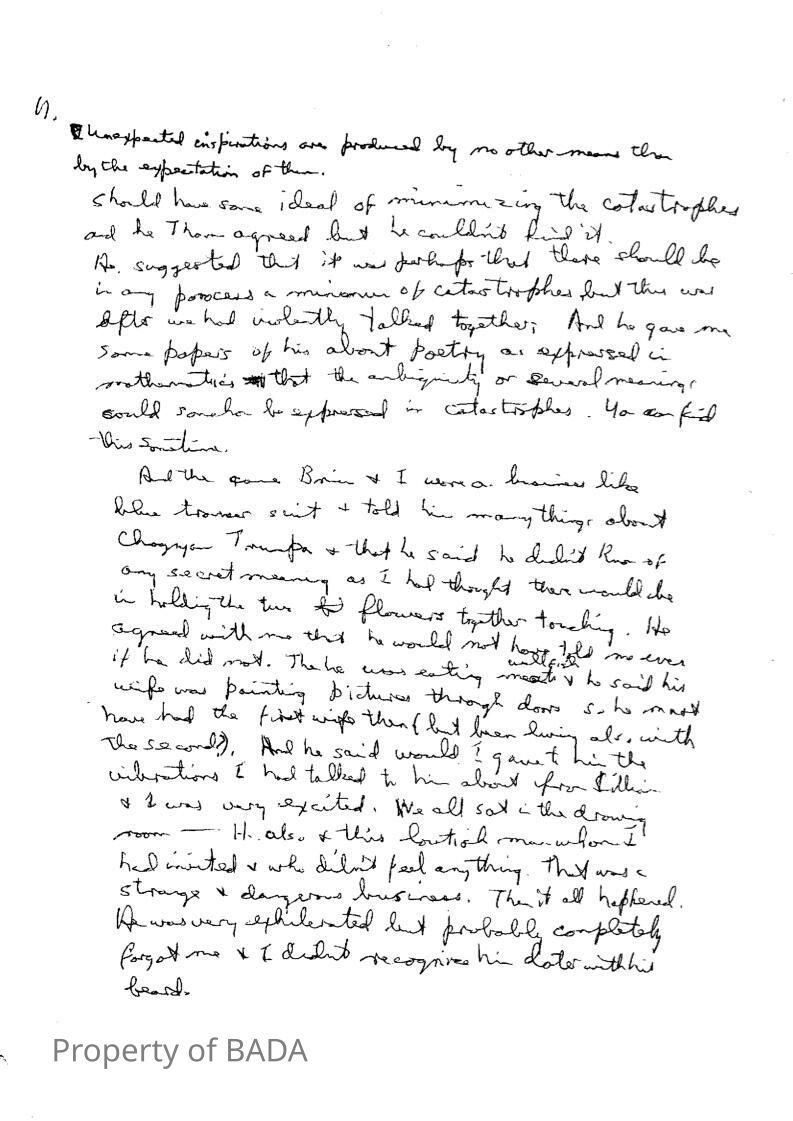 Unexpected inspirations are produced by no other means than
by the expectation of them.
should have some ideal of minimizing the catastrophes
and he Thom agreed but he couldn't find it.
He suggested that it was perhaps that there should be
in any porocess a minimum of catastrophes but this was
after we had violently talked together; And he gave me
some papers of his about Poetry as expressed in
mathematics that the ambiguity or several meanings
could somehow be expressed in catastrophes. You can find
this sometime.
And the came & I wore a business like
blue trouser suit & told him many things about
Chogyam Trumpa & that he said he didn't know of
any secret meaning as I had thought there would be
in holding the two flowers together touching. He
agreed with me that he would not have told me even
if he did not. The he was eating meat & he said his
wife was painting pictures through doors so he must
have had the first wife then (but been living also with
the second?). And he said would I gave him the
vibrations I had talked to him about from Lillian
& I was very excited. We all sat in the drawing
room — He also & this loutish man whom I
had invited & who didn't feel anything. That was a
strange & dangerous business. Then it all happened.
He was very exhilerated but probably completely
forgot me & I didn't recognize him later with his
beard.
Property of BADA